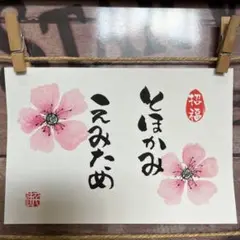 招福
とほかみ
えみため